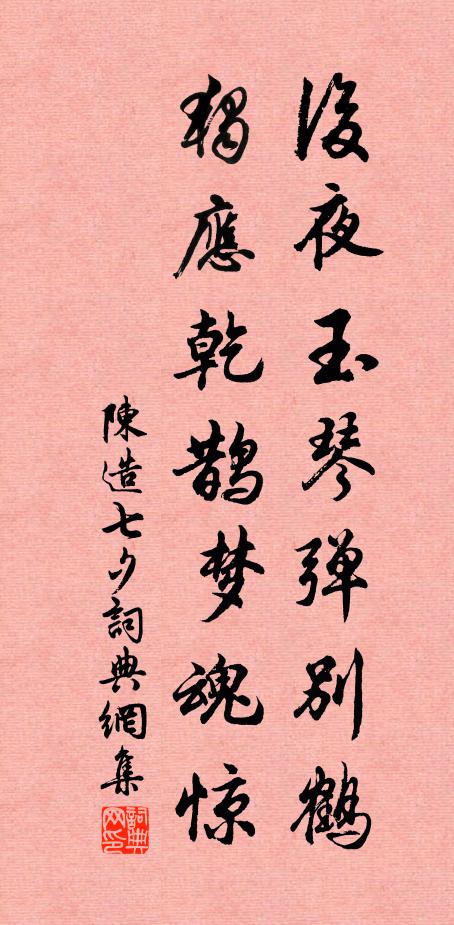 後夜玉琴弹别鹤
独應乾鹊梦魂惊
陳造七夕詞典網集
詞典网印